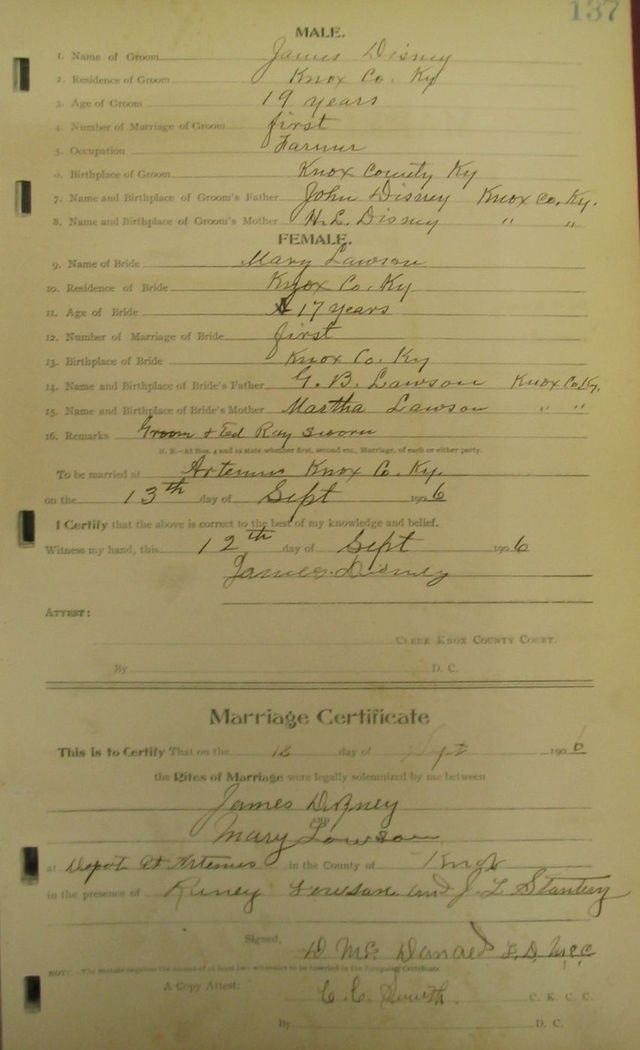 137
MALE.
1. Name of Groom James Disney
2. Residence of Groom Knox Co. Ky
3. Age of Groom 19 years
4. Number of Marriage of Groom first
5. Occupation Farmer
6. Birthplace of Groom Knox County Ky
7. Name and Birthplace of Groom's Father John Disney Knox Co, Ky.
8. Name and Birthplace of Groom's Mother H. L. Disney " "
FEMALE.
9. Name of Bride Mary Lawson
10. Residence of Bride Knox Co. Ky
11. Age of Bride 17 years
12. Number of Marriage of Bride first
13. Birthplace of Bride Knox Co. Ky
14. Name and Birthplace of Bride's Father G. B. Lawson Knox Co. Ky.
15. Name and Birthplace of Bride's Mother Martha Lawson " "
16. Remarks Groom & Ed Ray Sworn
N. B.—At Nos. 4 and 12 state whether first, second etc., Marriage, of each or either party.
To be married at Artemus Knox Co. Ky.
on the 13th day of Sept 1906
I Certify that the above is correct to the best of my knowledge and belief.
Witness my hand, this 12th day of Sept 1906
James Disney
ATTEST:
CLERK KNOX COUNTY COURT.
By D. C.
Marriage Certificate
This is to Certify That on the 13 day of Sept 1906
the Rites of Marriage were legally solemnized by me between
James Disney
AND
Mary Lawson
at Depot at Artemus in the County of Knox
in the presence of Riney Lawson and J. L.
Signed, D Mc
NOTE.—The statute requires the names of at least two witnesses to be inserted in the foregoing Certificate
A Copy Attest: C. C. Smith. C. K. C. C.
By D. C.